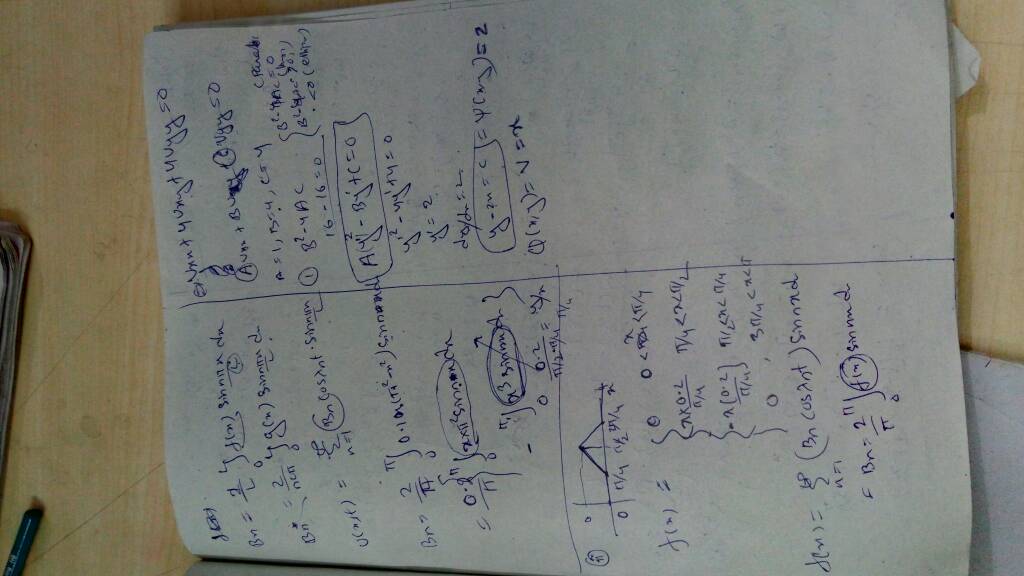 Bn = 2/L ∫₀ᴸ f(x) sin nπx/L dx
Bn* = 2/cnπ ∫₀ᴸ g(x) sin nπx/L dx
u(x,t) = ∞Σn=1 Bn cosλnt · sin nπx/L
Bn = 2/π ∫₀^π 0.1 x(π²-x²) sin nx dx
= 0.2/π { ∫₀^π xπ² sin nx dx
- ∫₀^π x³ sin nx dx }
0.2/π/2-π/4 = y/x
π/4
(ii)
0
0 π/4 π/2 3π/4 x
f(x) = { 0 0 < x < π/4
x×0.2/π/4 π/4 < x < π/2
-x(0.2/π/4) π/2 < x < π/4
0 3π/4 < x < π
f(x) = ∞Σn=1 (Bn cosλnt) sin nx d
= Bn = 2/π ∫₀^π f(x) sin nx dx
Uxx + 4Uxy + 4Uyy = 0
AUxx + BUxy + CUyy = 0
A = 1, B = 4, C = 4
(Parab
① B² - 4AC
B²-4AC = 0
16 - 16 = 0
<0 (ellip)
Ay'² - By' + C = 0
y'² - 4y' + 4 = 0
y' = 2
dy/dx = 2
y - 2x = c = Ψ(x,y) = z
Φ(x,y) = v = x